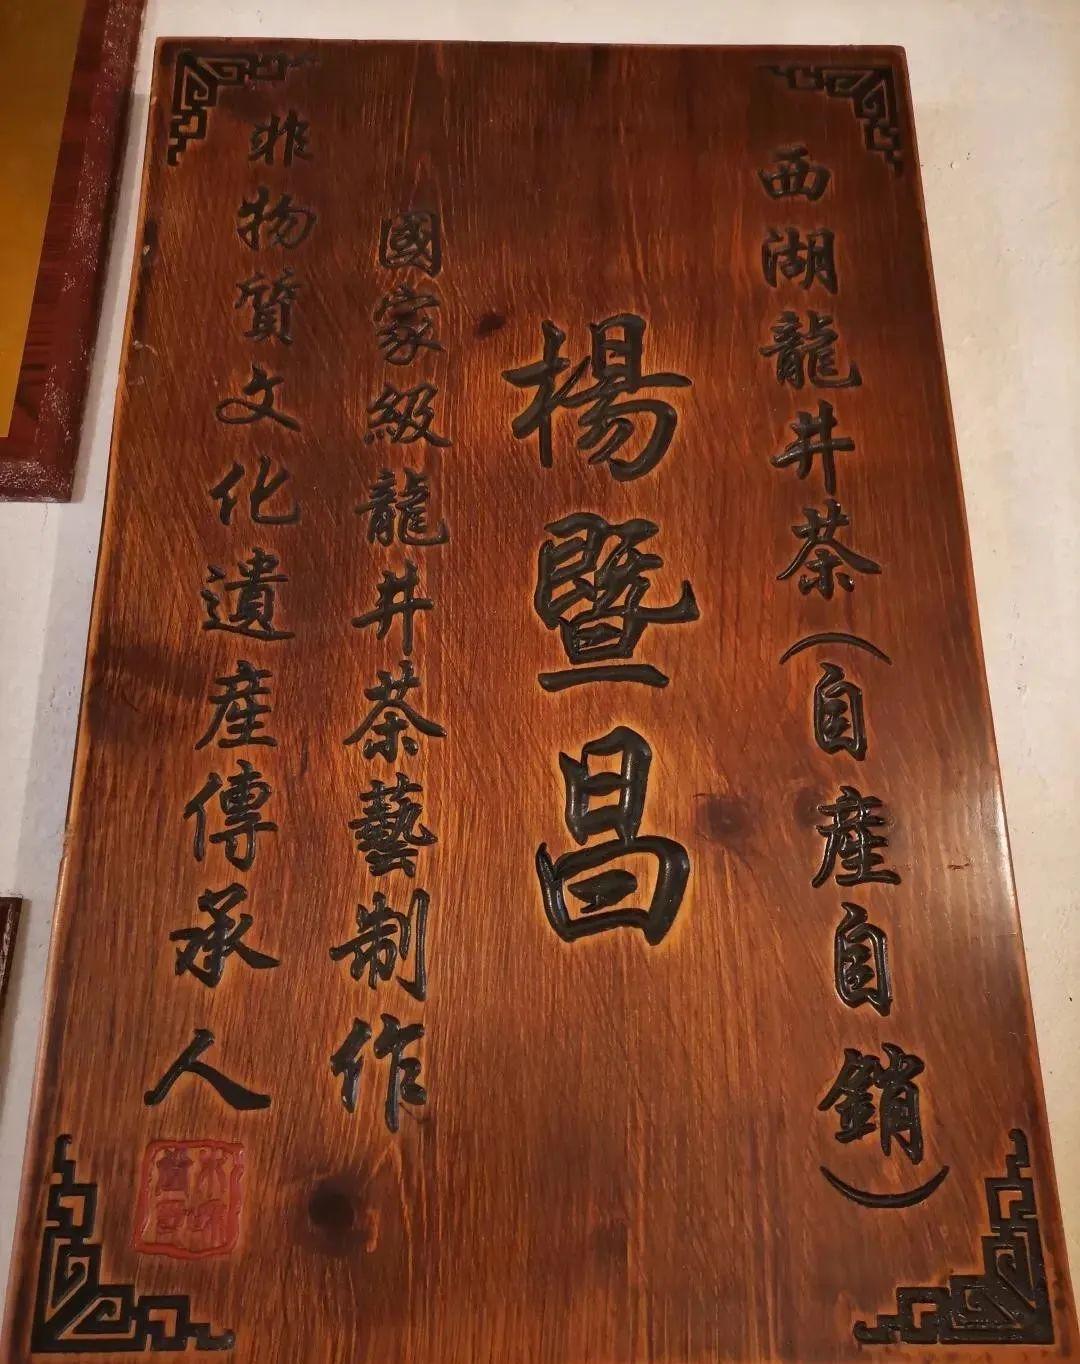 西湖龍井茶(自產自銷)
楊暨昌
國家級龍井茶藝制作
非物質文化遺產傳承人